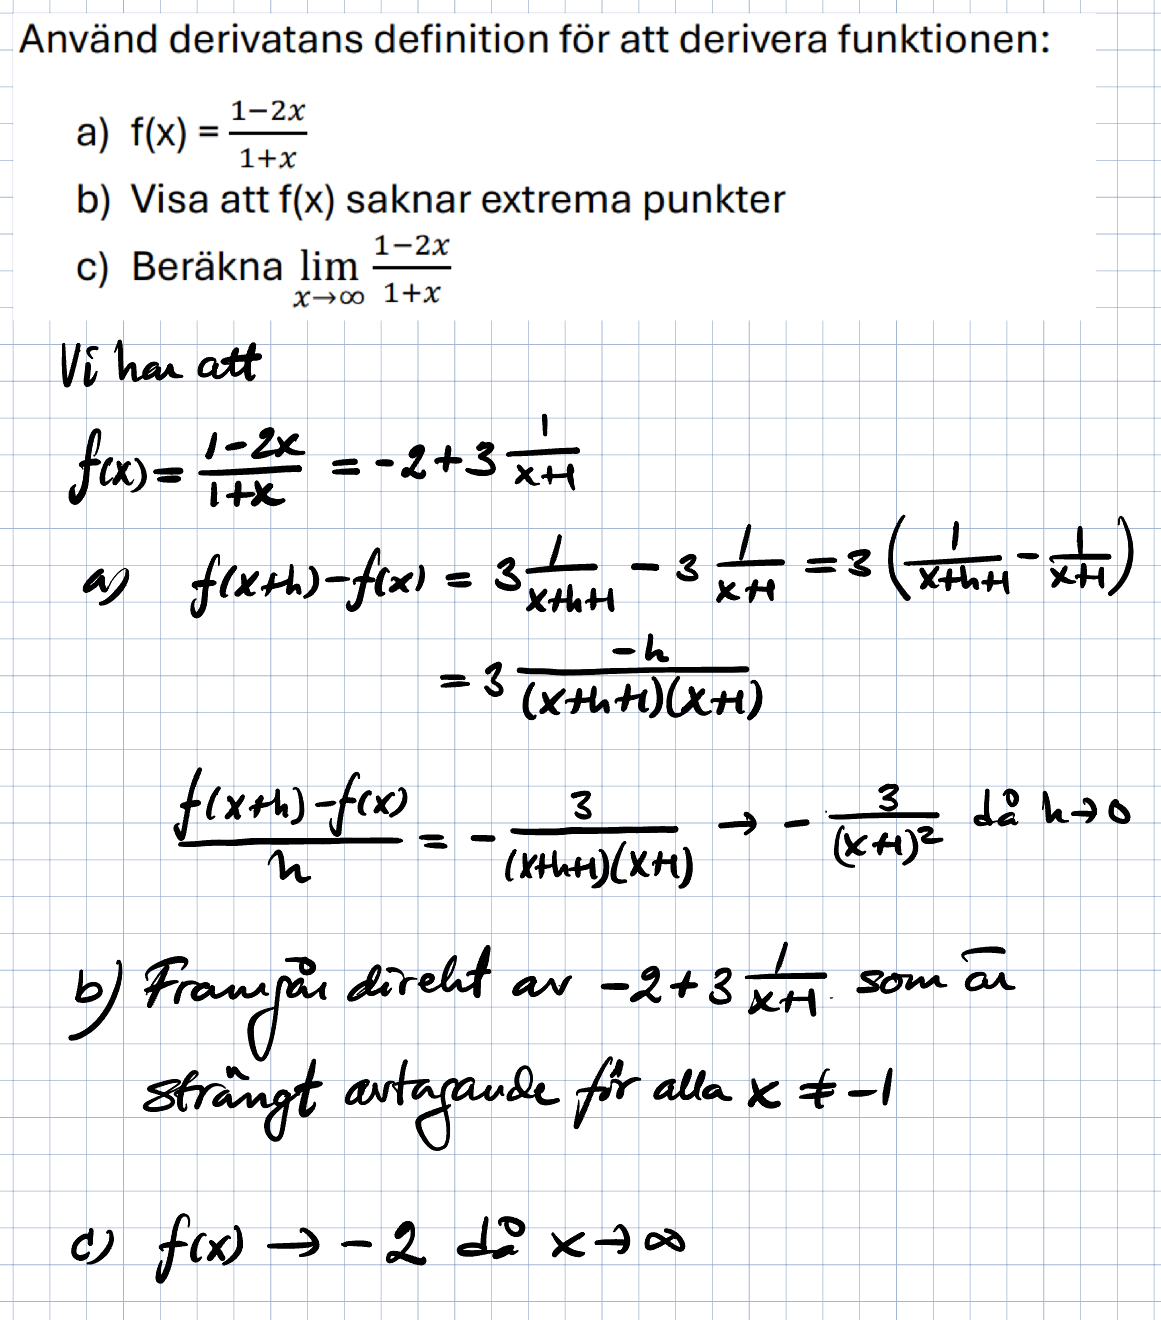 Använd derivatans definition för att derivera funktionen:
a) f(x) = (1−2x)/(1+x)
b) Visa att f(x) saknar extrema punkter
c) Beräkna lim x→∞ (1−2x)/(1+x)
Vi har att
f(x) = (1-2x)/(1+x) = -2+3 1/(x+1)
a) f(x+h)-f(x) = 3 1/(x+h+1) - 3 1/(x+1) = 3 (1/(x+h+1) - 1/(x+1))
= 3 -h/((x+h+1)(x+1))
(f(x+h)-f(x))/h = - 3/((x+h+1)(x+1)) → - 3/(x+1)² då h→0
b) Framgår direkt av -2+3 1/(x+1) som är
strängt avtagande för alla x ≠ -1
c) f(x) → -2 då x→∞